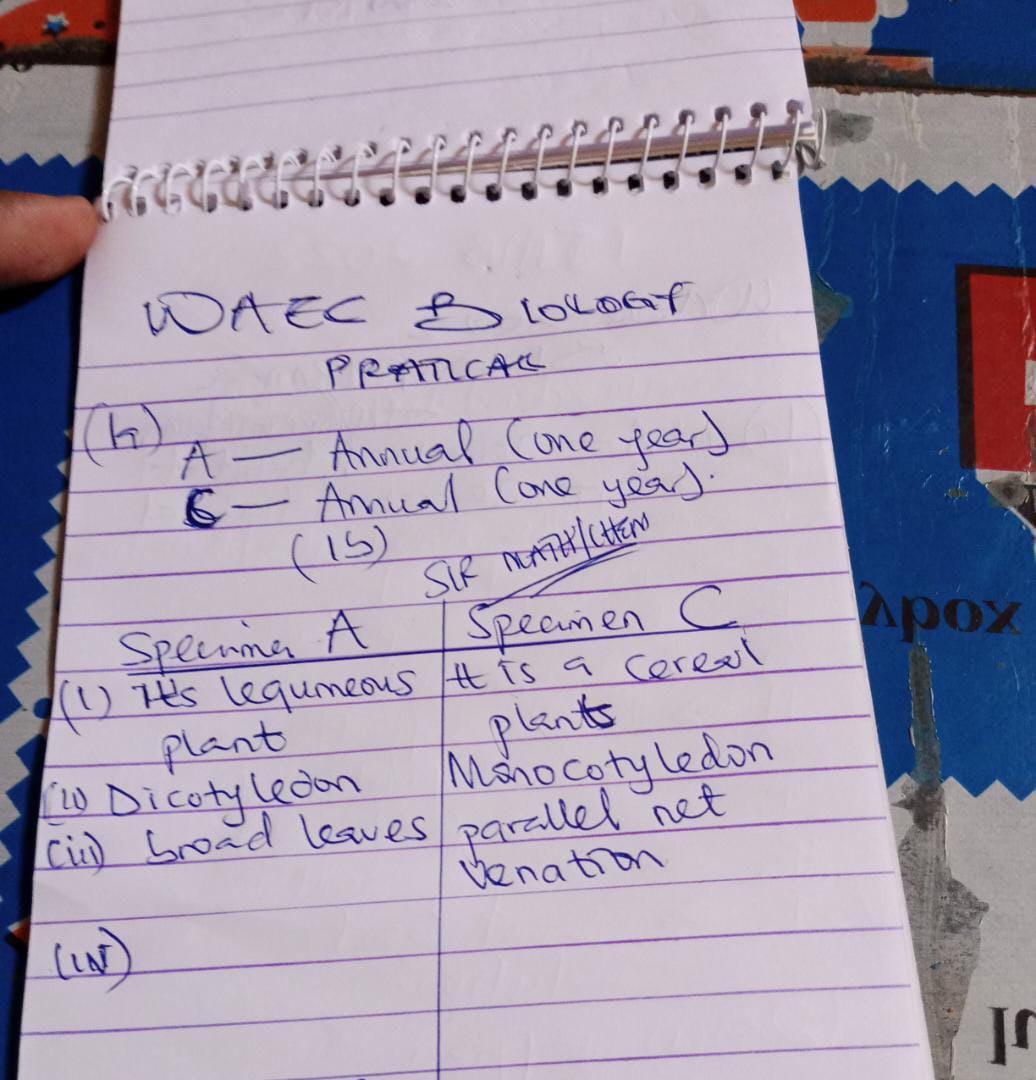 WAEC BIOLOGY
PRATICAL
A — Annual (one year)
C — Annual (one year).
(1b)
SIR MATH/CHEM
Specimen A
Specimen C
(i) It's lequmeous plant
It is a cereal plants
(ii) Dicotyledon
Monocotyledon
(iii) broad leaves
parallel net
venation
(iv)